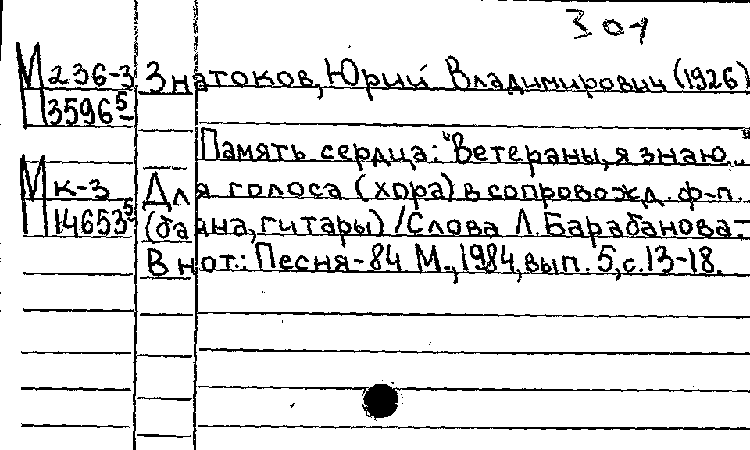 301
М 236-3 Знатоков, Юрий Владимирович (1926)
3596 5
Память сердца: "Ветераны, я знаю..."
М к-3 Для голоса (хора) в сопровожд. ф-п.
14653 5 (баяна, гитары) / Слова Л. Барабанова-
В нот.: Песня-84 М., 1984, вып. 5, с. 13-18.